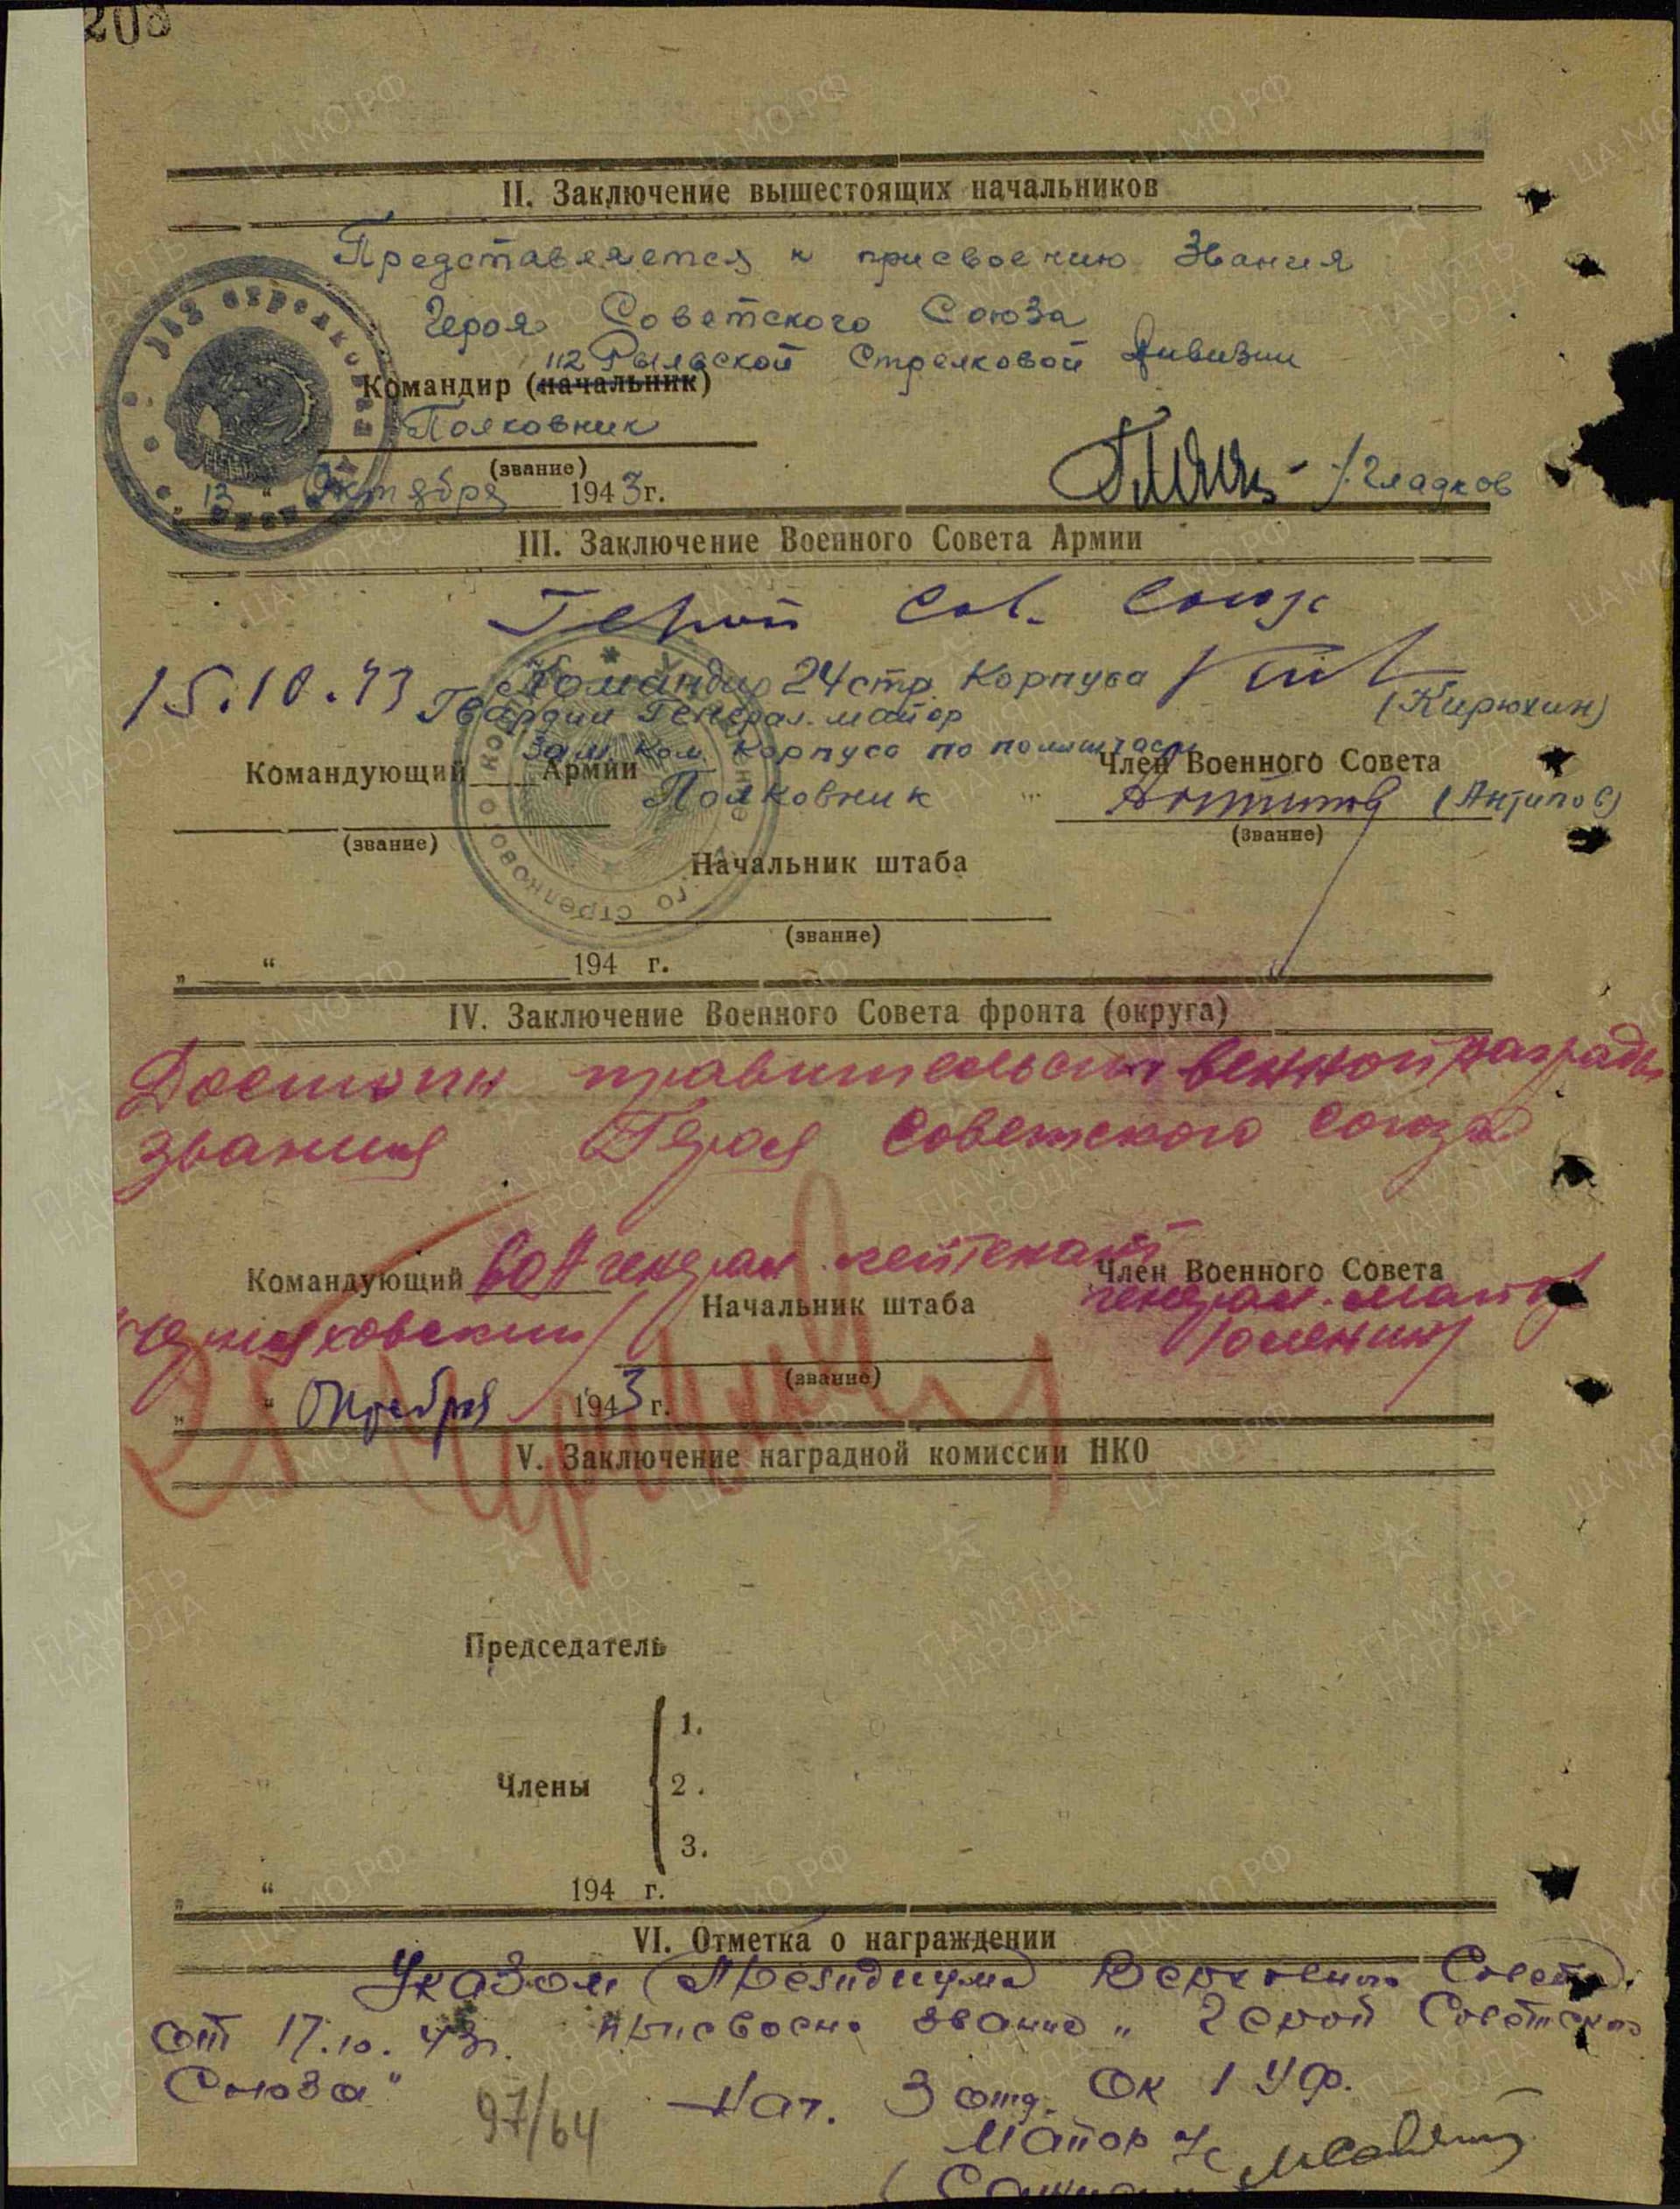 203
II. Заключение вышестоящих начальников
Представляется к присвоению Звания
Героя Советского Союза
112 Рыльской Стрелковой Дивизии
Командир (начальник)
Полковник
(звание)
Гладков
13 “ Октября 1943г.
III. Заключение Военного Совета Армии
Герой Сов. Союза
15.10.43 Командир 24 стр. Корпуса
Гвардии Генерал-майор (Кирюхин)
Зам. Ком. Корпуса по
Командующий Армии Член Военного Совета
Полковник (Антипов)
(звание) (звание)
Начальник штаба
(звание)
„ “ 194 г.
IV. Заключение Военного Совета фронта (округа)
Достоин правительственной награды
звания Героя Советского Союза
Командующий 60 А генерал-лейтенант Член Военного Совета
Начальник штаба генерал-майор
Черняховский Оленин
(звание)
„ “ Октября 1943 г.
V. Заключение наградной комиссии НКО
Председатель
Члены
1.
2.
3.
„ “ 194 г.
VI. Отметка о награждении
Указом Президиума Верховного Совета
от 17.10.43г. присвоено звание „Герой Советского
Союза“
97/64 Нач. 3 отд. ОК 1 УФ.
Майор
ЦА МО РФ
ПАМЯТЬ НАРОДА